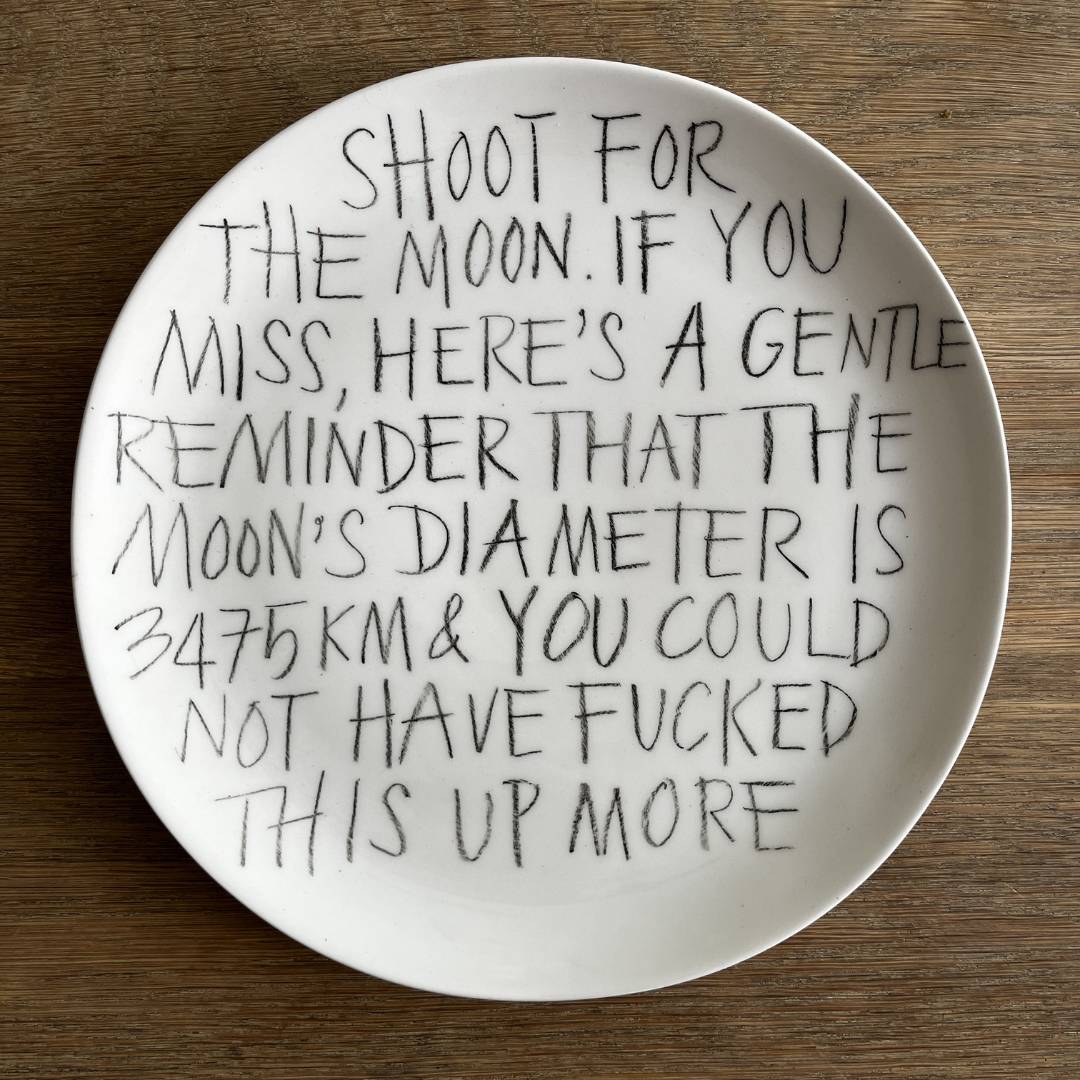 SHOOT FOR
THE MOON. IF YOU
MISS, HERE'S A GENTLE
REMINDER THAT THE
MOON'S DIAMETER IS
3475KM & YOU COULD
NOT HAVE FUCKED
THIS UP MORE